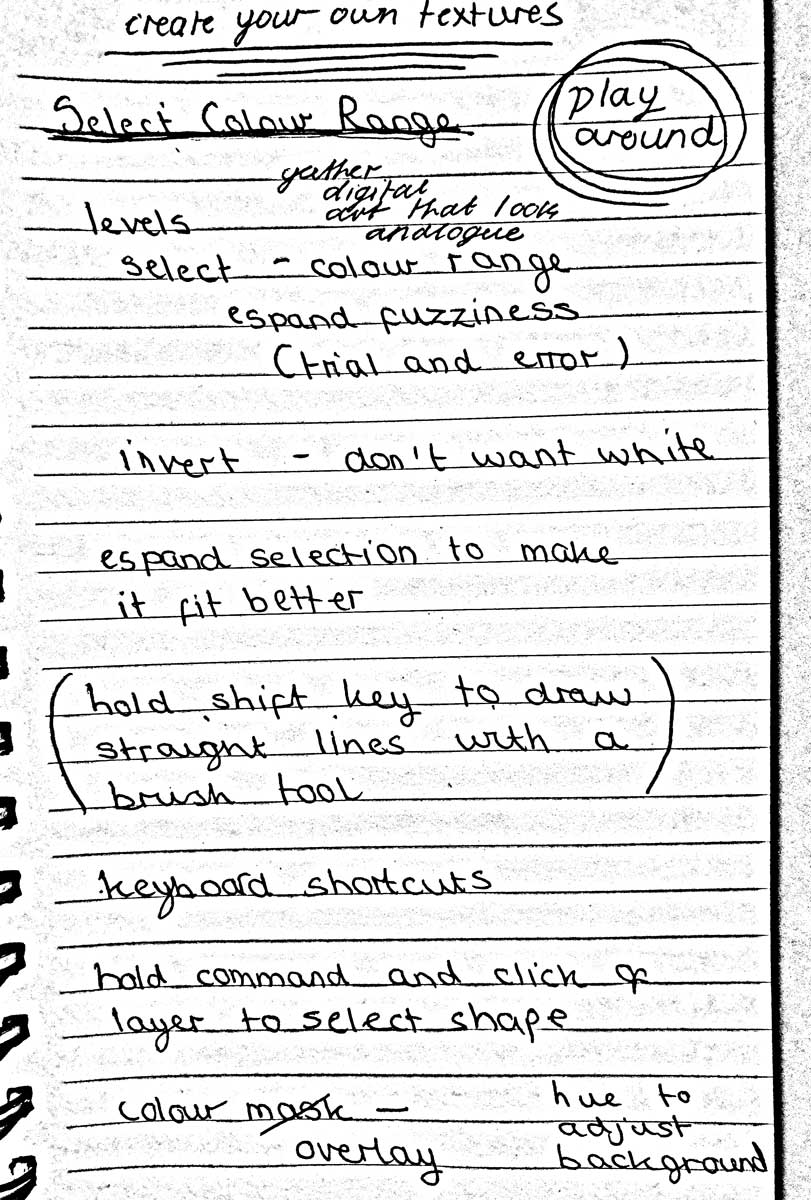 create your own textures
Select Colour Range
play
around
gather
digital
art that looks
analogue
levels
select - colour range
espand fuzziness
(trial and error)
invert - don't want white
espand selection to make
it fit better
(hold shift key to draw
straight lines with a
brush tool)
keyboard shortcuts
hold command and click
layer to select shape
colour mask -
overlay
hue to
adjust
background